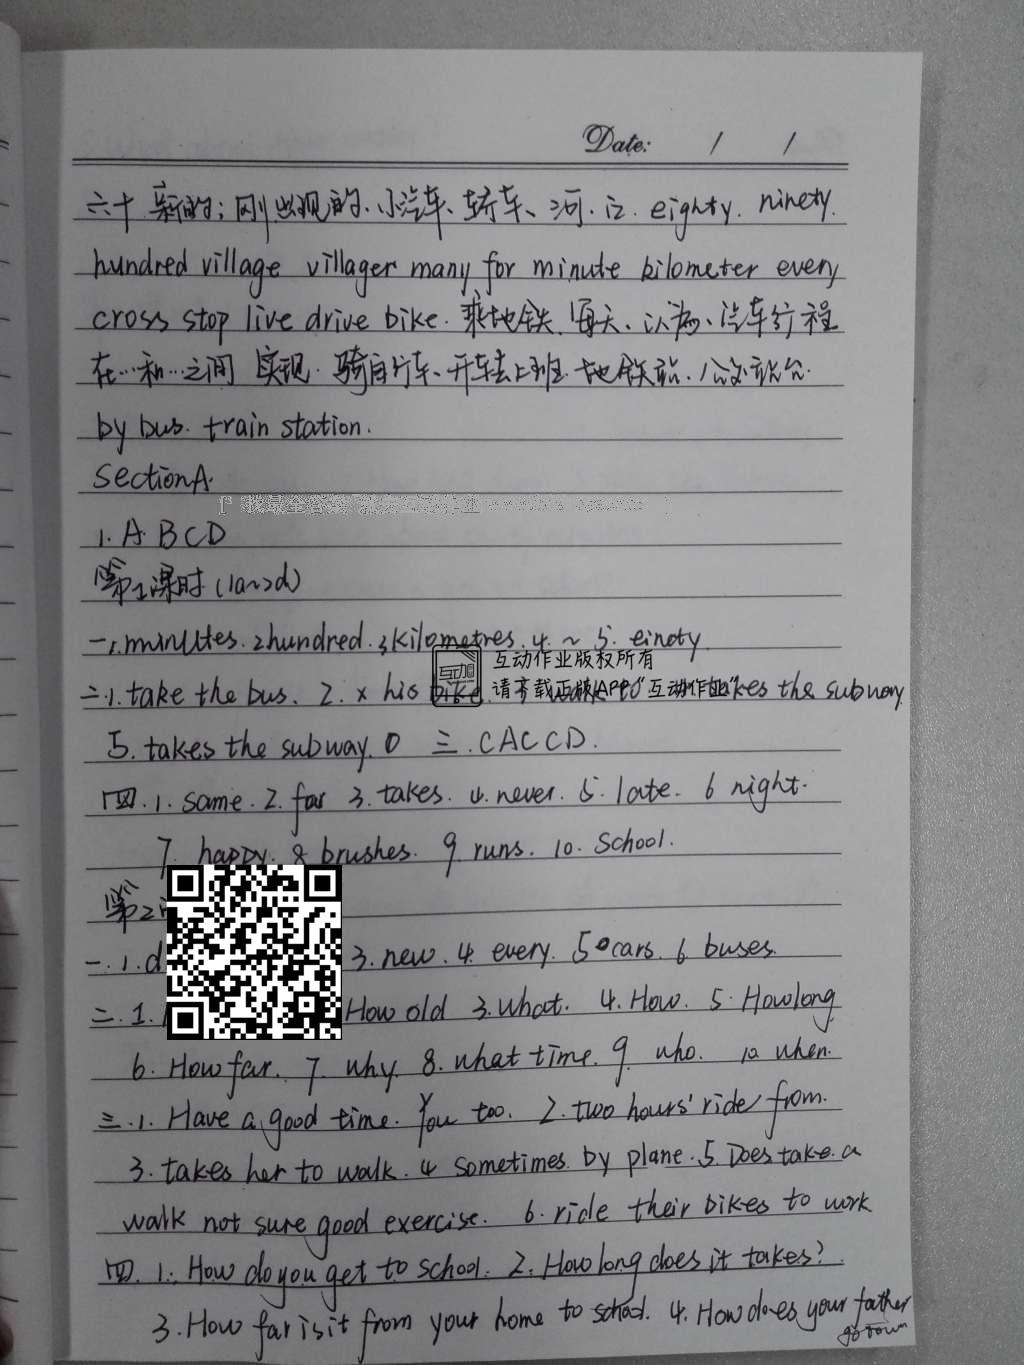 Date: / /
六十 新的; 刚出现的、小汽车、轿车、河. 江. eighty. ninety.
hundred village villager many for minute kilometer every
cross stop live drive bike. 乘地铁. 每天、认为、汽车行程
在…和…之间 实现. 骑自行车、开车去上班. 地铁站.
by bus. train station.
Section A.
1. A B C D
第1课时 (1a~2d)
一.1. minutes. 2 hundred. 3 kilometres. 4. ~ 5. einety
互动作业版权所有
二.1. take the bus. 2. x his bike takes the subway.
请下载正版APP“互动作业”
5. takes the subway. 0 三. CACCD.
四.1. same. 2. far 3. takes. 4. never. 5. late. 6 night.
7. happy. 8 brushes. 9 runs. 10. School.
第2
一.1. d 3. new. 4. every. 5 cars. 6. buses.
二.1. How old 3. what. 4. How. 5. How long
6. How far. 7. why. 8. what time. 9. who. 10. when.
三.1. Have a good time. You too. 2. two hours' ride from.
3. takes her to walk. 4 sometimes. by plane. 5. Does take. a
walk not sure good exercise. 6. ride their bikes to work
四. 1. How do you get to school. 2. How long does it takes?
3. How far is it from your home to school. 4. How does your father
go town